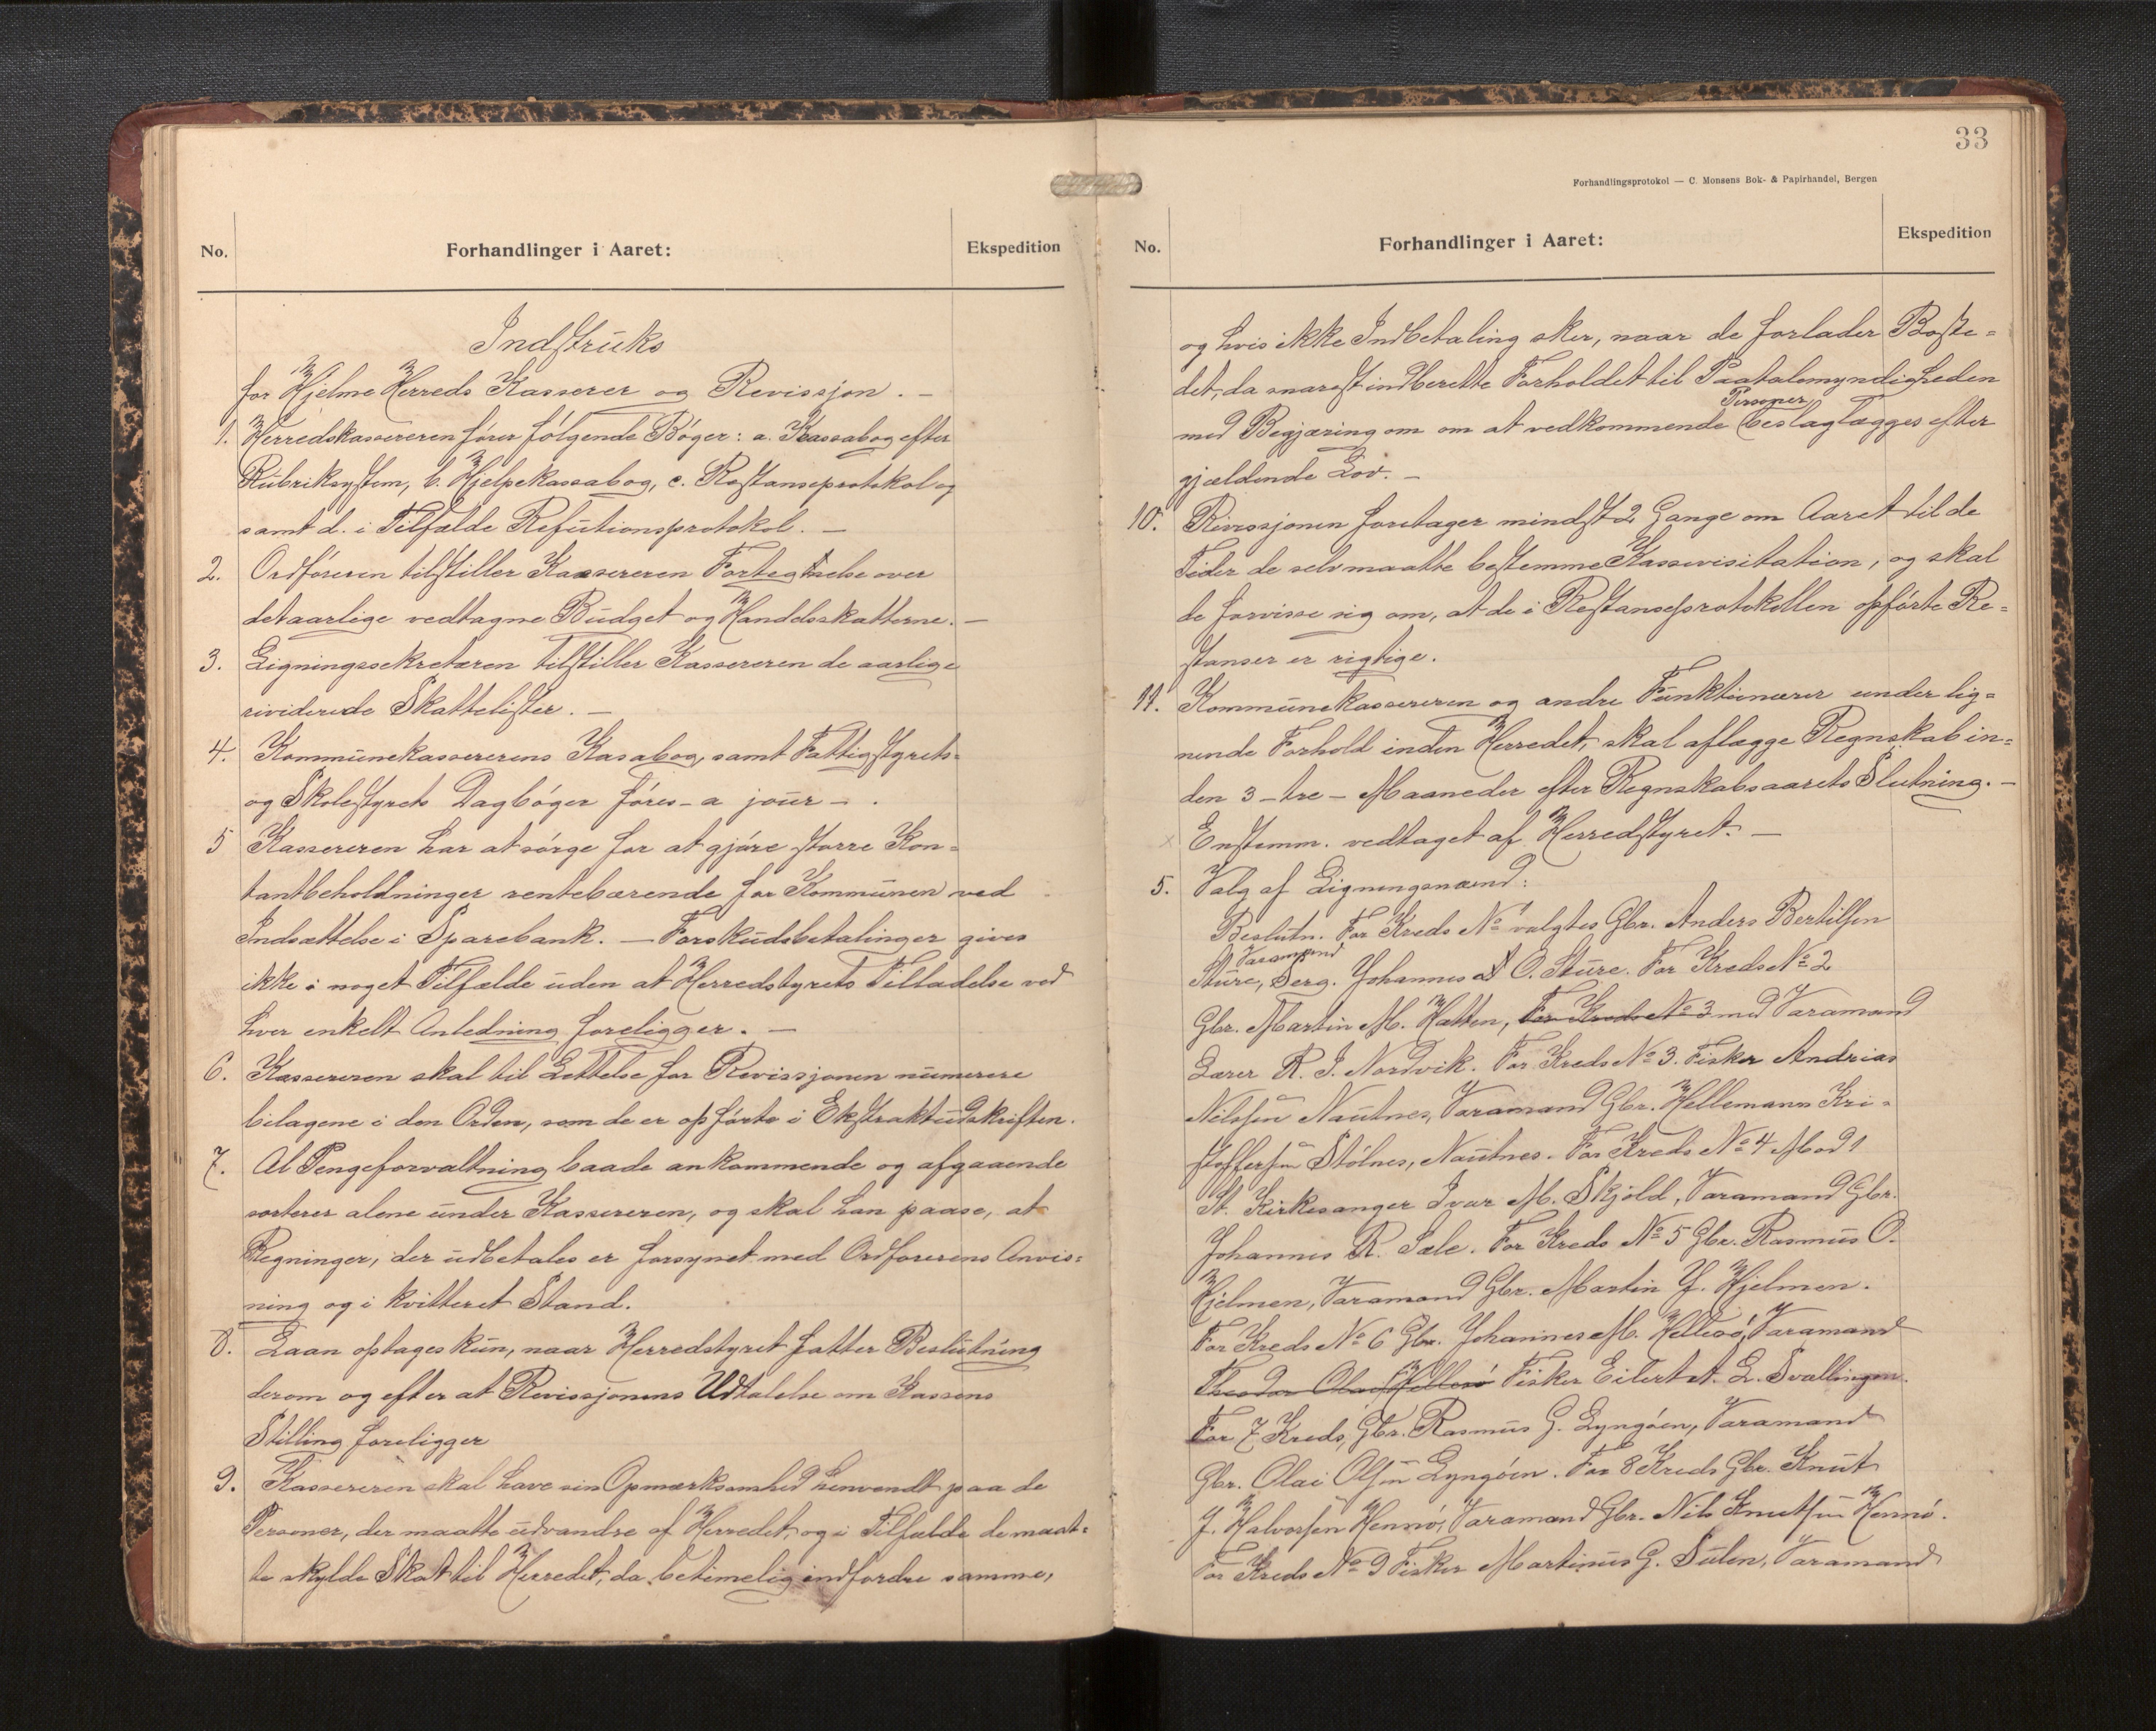 No.
Forhandlinger i Aaret:
Ekspedition
Indstruks
for Hjelme Herreds Kasserer og Revissjon. -
1. Herredskassereren fører følgende Bøger: a. Kassabog efter
Rubriksystem, b. Hjelpekassabog, c. Restanseprotokol og
samt d. i Tilfælde Refutionsprotokol. -
2. Ordføreren tilstiller Kassereren Fortegnelse over
det aarlige vedtagne Budget og Handelsskatterne. -
3. Ligningssekretæren tilstiller Kassereren de aarlige
reviderede Skattelister. -
4. Kommunekassererens Kasabog, samt Fattigstyrets-
og Skolestyrets Dagbøger føres - a jour - .
5 Kassereren har at sørge for at gjøre større Kon-
tantbeholdninger rentebærende for Kommunen ved
Indsættelse i Sparebank. - Forskudsbetalinger gives
ikke i noget Tilfælde uden at Herredstyrets Tilladelse ved
hver enkelt Anledning foreligger. -
6. Kassereren skal til Lettelse for Revissjonen numerere
bilagene i den Orden, som de er opførte i Ekstraktudskriften.
7. Al Pengeforvaltning baade ankommende og afgaaende
sorterer alene under Kassereren, og skal han paase, at
Regninger, der udbetales er forsynet med Ordførerens Anvis-
ning og i kvitteret Stand.
8. Laan optages kun, naar Herredstyret fatter Beslutning
derom og efter at Revissjonens Udtalelse om Kassens
Stilling foreligger
9. Kassereren skal have sin Opmærksomhed henvendt paa de
Personer, der maatte udvandre af Herredet, og i Tilfælde de maat-
te skylde Skat til Herredet, da betimelig indfordre samme,
33
Forhandlingsprotokol — C. Monsens Bok- & Papirhandel, Bergen
No.
Forhandlinger i Aaret:
Ekspedition
og hvis ikke Indbetaling sker, naar de forlader Boste-
det, da snarest indberette Forholdet til Paatalemyndigheden
Personer
med Begjæring om om at vedkommende beslaglægges efter
gjældende Lov. -
10. Revissjonen foretager mindst 2 Gange om Aaret til de
Tider de selv maatte bestemme Kassevisitation, og skal
de forvisse sig om, at de i Restanseprotokollen opførte Re-
stanser er rigtige.
11. Kommunekassereren og andre Funktionærer under lig-
nende Forhold inden Herredet, skal aflægge Regnskab in-
den 3 - tre - Maaneder efter Regnskabsaarets Slutning. -
Enstemm. vedtaget af Herredstyret. -
5. Valg af Ligningsmænd:
Beslutn. For Kreds No 1 valgtes Gbr. Anders Bertilsen
Varamand
Sture, Serg. Johannes O. Sture. For Kreds No 2
Gbr. Martin M. Hatten, For Kreds No 3 med Varamand
Lærer R. J. Nordvik. For Kreds No 3. Fisker Andrias
Nilssen Nautnes, Varamand Gbr. Hellemann Kri-
stoffersen Stølnes, Nautnes. For Kreds No 4 Mod 1
St. Kirkesanger Ivar M. Skjold, Varamand Gbr.
Johannes R. Sæle. For Kreds No 5 Gbr. Rasmus O.
Hjelmen, Varamand Gbr. Martin J. Hjelmen.
For Kreds No 6 Gbr. Johannes M. Hellesø, Varamand
Theodor Olai Hellesø Fisker Eilert A. L. Svallingen.
For 7 Kreds, Gbr. Rasmus G. Lyngøen, Varamand
Gbr. Olai Olsen Lyngøen. For 8 Kreds Gbr. Knut
J. Halvorsen Hernø, Varamand Gbr. Nils Knutsen Hernø.
For Kreds No 9 Fisker Martinus G. Sulen, Varamand